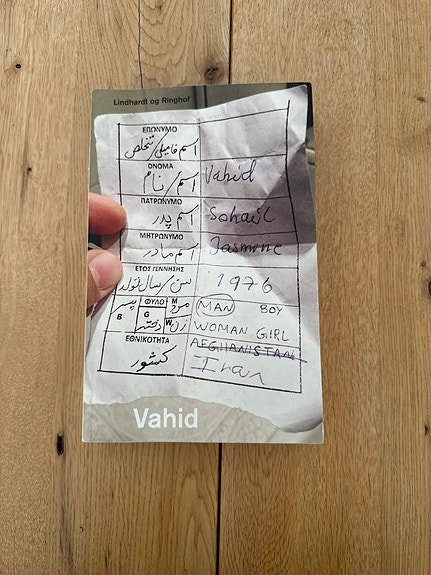 Lindhardt og Ringhof
ΕΠΩΝΥΜΟ
اسم فامیلی/تخلص
ΟΝΟΜΑ
اسم/نام Vahid
ΠΑΤΡΩΝΥΜΟ
اسم پدر Sohail
ΜΗΤΡΩΝΥΜΟ
اسم مادر Jasmine
ΕΤΟΣ ΓΕΝΝΗΣΗΣ
سن/سال تولد 1976
پسر B ΦΥΛΟ M مرد MAN BOY
G دختر W زن WOMAN GIRL
ΕΘΝΙΚΟΤΗΤΑ AFGHANISTAN
کشور Iran
Vahid